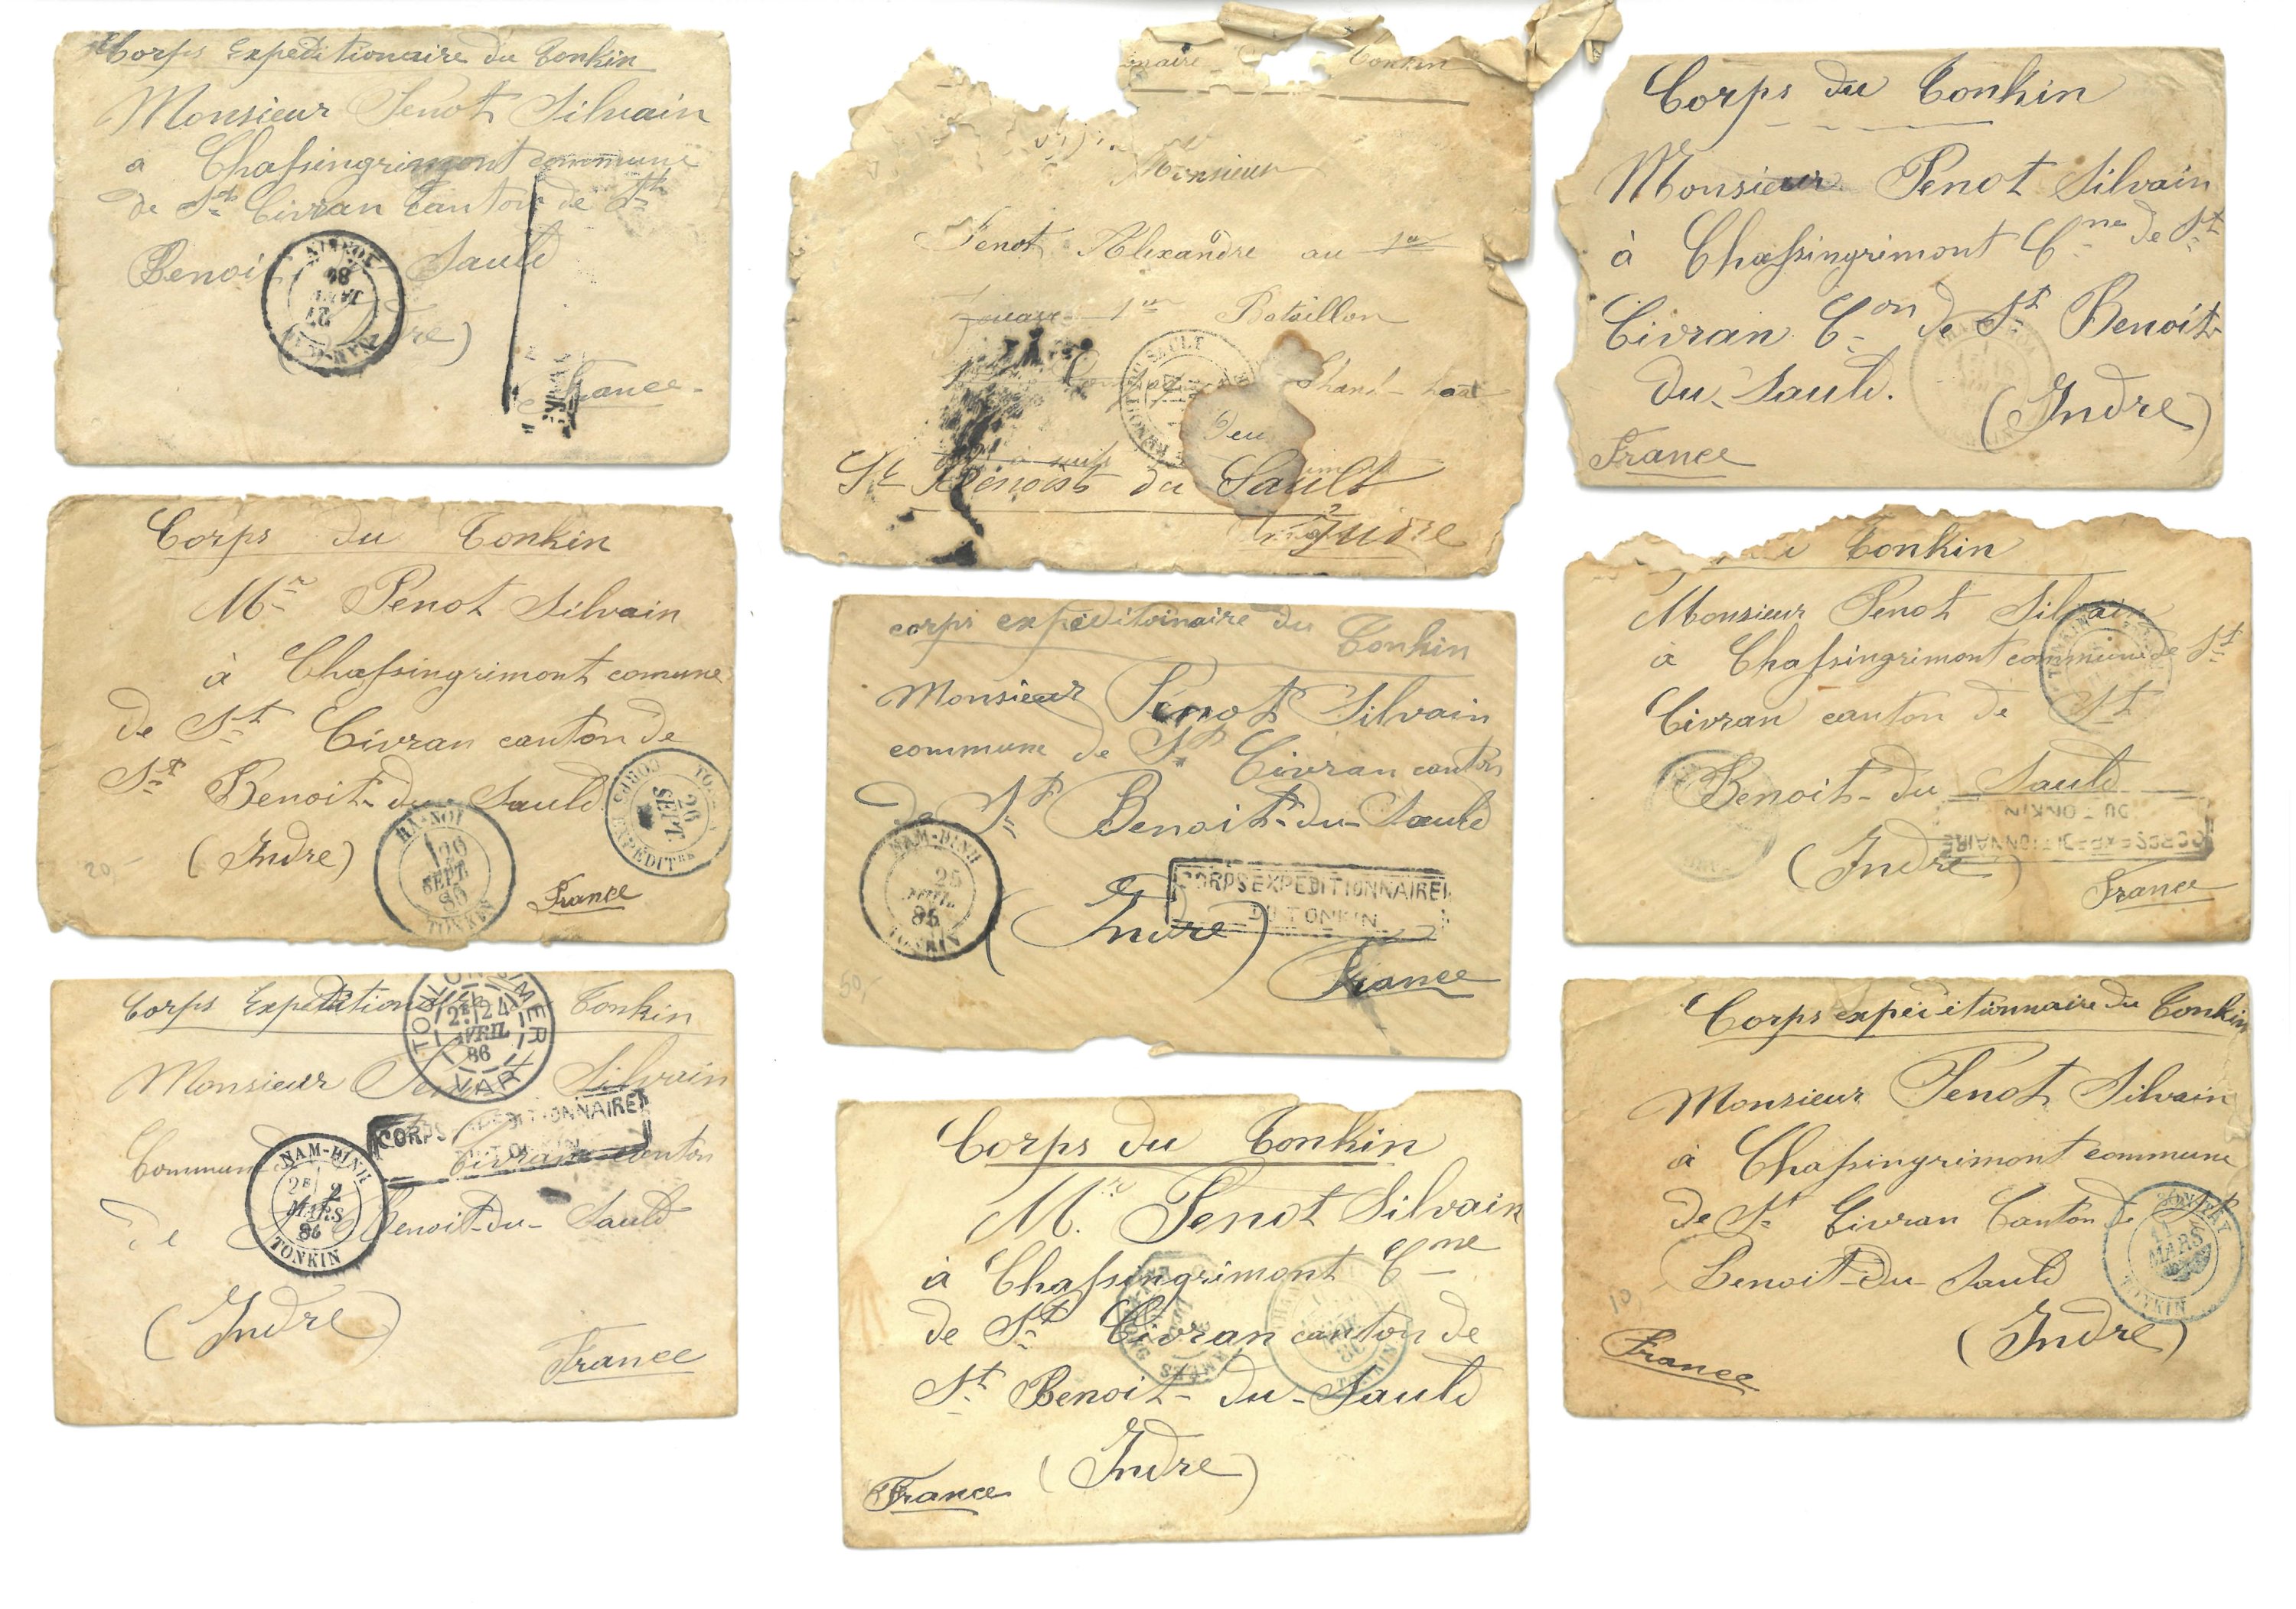 Corps Expeditionaire du Tonkin
Monsieur Penot Silvain
a Chassingrimont commune
de St Civran Canton de St
Benoit Sauld
France
HA-NOI
TONKIN
Corps du Tonkin
Mr Penot Silvain
à Chassingrimont comune
de St Civran canton de
St Benoit-du-Sauld
(Indre)
France
20,-
HA-NOI
20
SEPT.
TONKIN
CORPS EXPEDITRE
26
SEPT.
Corps Expeditionaire Tonkin
Monsieur Silvain
Commune Civran canton
de Benoit-du-Sauld
(Indre)
France
TOULON
2E 24
AVRIL
86
VAR
CORPS EXPEDITIONNAIRE
TONKIN
NAM-DINH
2E 2
MARS
86
TONKIN
naire Tonkin
Monsieur
Penot Alexandre au 1er
1er Bataillon
St Benoist du Sault
Indre
corps expeditoinaire du Tonkin
Monsieur Penot Silvain
commune de St Civran canton
de St Benoit-du-Sauld
(Indre)
France
50,-
NAM-DINH
25
AVRIL
86
TONKIN
CORPS EXPEDITIONNAIRE
DU TONKIN
Corps du Tonkin
Mr Penot Silvain
à Chassingrimont Cne
de St Civran canton de
St Benoit-du-Sauld
(Indre)
France
TONKIN
Corps du Tonkin
Monsieur Penot Silvain
à Chassingrimont Cne de St
Civran Con de St Benoit
du Sauld.
(Indre)
France
Tonkin
Monsieur Penot Silvain
à Chassingrimont commune de St
Civran canton de St
Benoit-du-Sauld
(Indre)
France
CORPS EXPEDITIONNAIRE
DU TONKIN
Corps expeditionnaire du Tonkin
Monsieur Penot Silvain
à Chassingrimont commune
de St Civran Canton de St
Benoit-du-Sauld
(Indre)
France
10
MARS
TONKIN